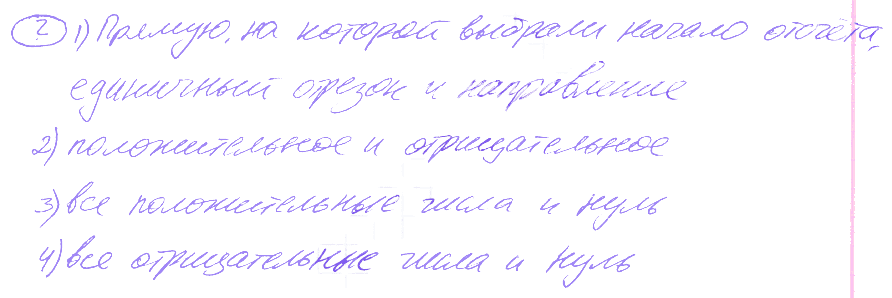 2 1) Прямую, на которой выбрали начало отсчёта,
единичный отрезок и направление
2) положительное и отрицательное
3) все положительные числа и нуль
4) все отрицательные числа и нуль